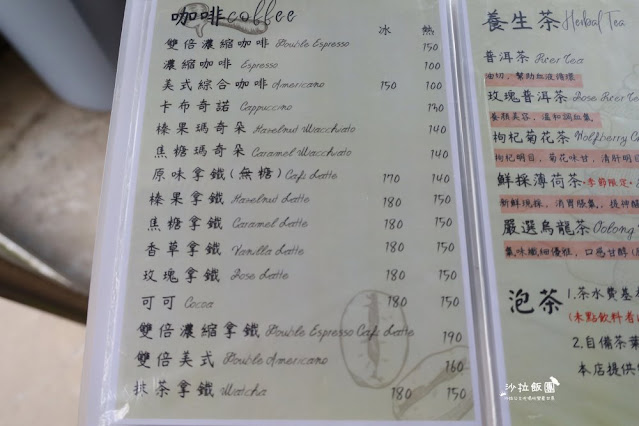 咖啡coffee 冰 熱
雙倍濃縮咖啡 Double Espresso 150
濃縮咖啡 Espresso 100
美式綜合咖啡 Americano 150 100
卡布奇諾 Cappuccino 140
榛果瑪奇朵 Hazelnut Macchiato 140
焦糖瑪奇朵 Caramel Macchiato 140
原味拿鐵(無糖) Café Latte 170 140
榛果拿鐵 Hazelnut Latte 180 150
焦糖拿鐵 Caramel Latte 180 150
香草拿鐵 Vanilla Latte 180 150
玫瑰拿鐵 Rose Latte 180 150
可可 Cocoa 180 150
雙倍濃縮拿鐵 Double Espresso Café Latte 190
雙倍美式 Double Americano 160
抹茶拿鐵 Matcha 180 150
養生茶 Herbal Tea
普洱茶 Puer Tea
油切, 幫助血液循環
玫瑰普洱茶 Rose Puer Tea
養顏美容, 溫和調血氣
枸杞菊花茶 Wolfberry
枸杞明目, 菊花味甘, 清肝明目
鮮採薄荷茶 *季節限定*
新鮮現採, 消胃脹氣, 提神
嚴選烏龍茶 Oolong
氣味纖細優雅, 口感甘醇
泡茶
1.茶水費
(未點飲料者
2.自備茶葉
本店提供
沙拉飯團